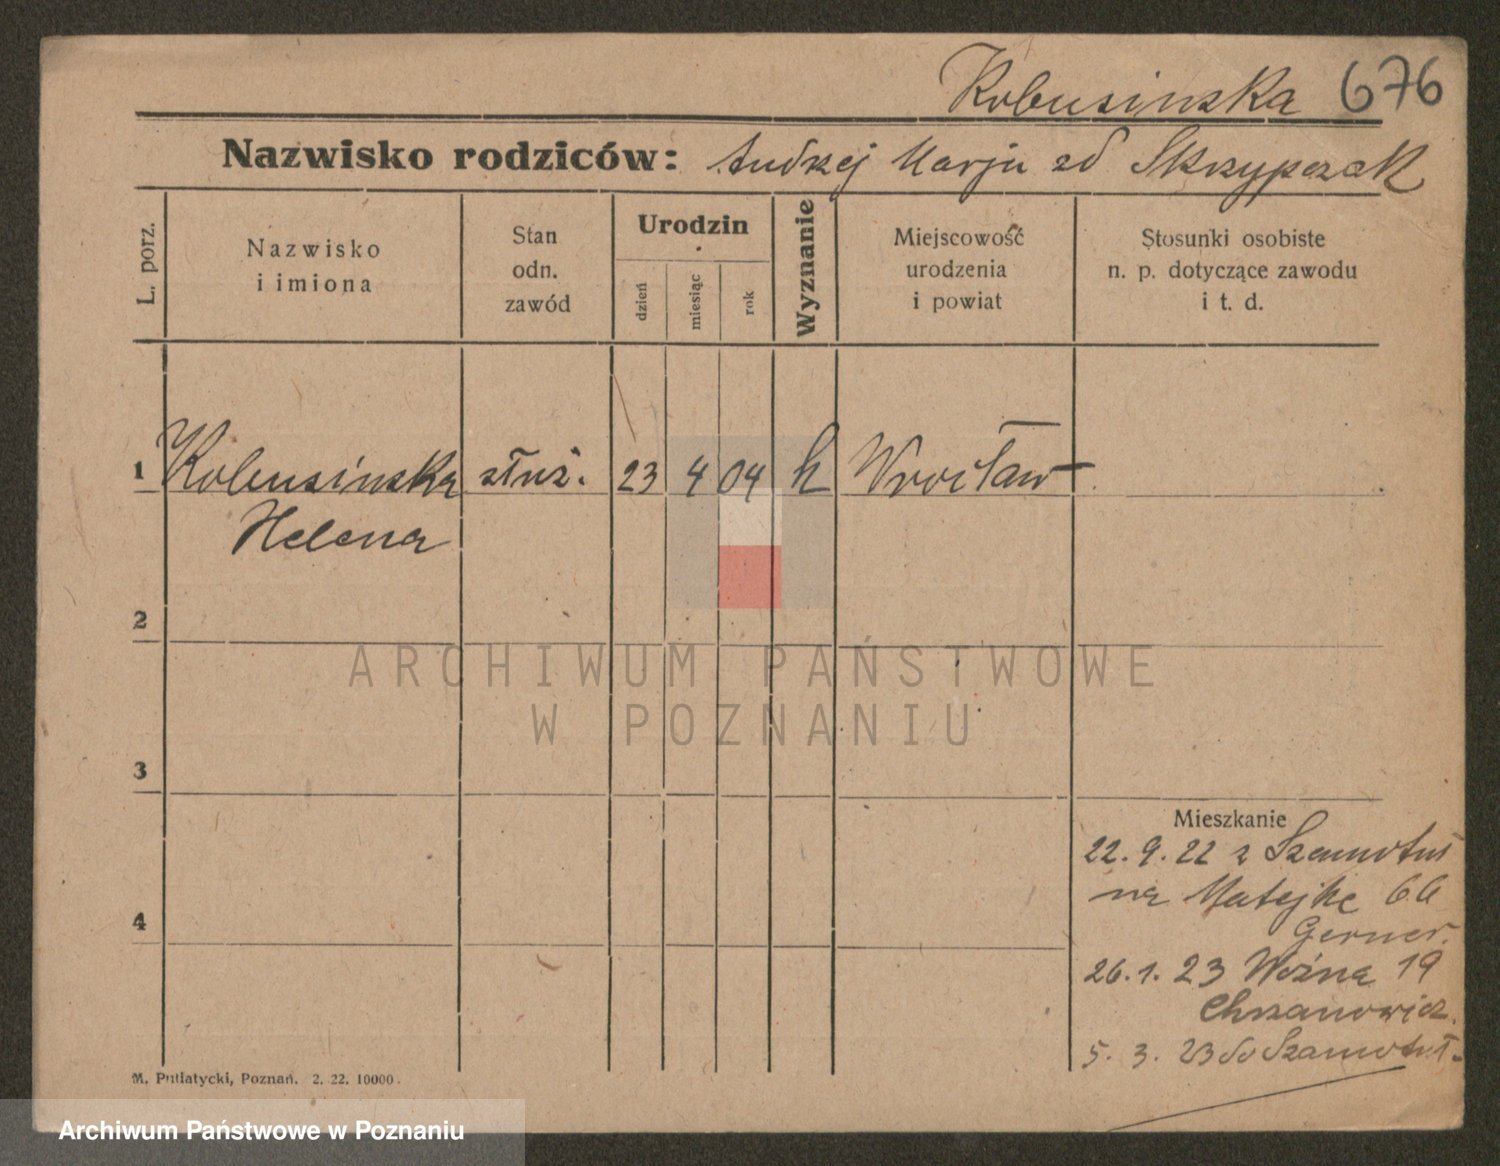 Kobusinska 676
Nazwisko rodziców: Andrzej Marja zd Skrzypczak
L. porz.
Nazwisko
i imiona
Stan
odn.
zawód
Urodzin
dzień
miesiąc
rok
Wyznanie
Miejscowość
urodzenia
i powiat
Stosunki osobiste
n. p. dotyczące zawodu
i t. d.
1 Kobusinska służ. 23 4 04 k Wrocław
Helena
2
ARCHIWUM PAŃSTWOWE
W POZNANIU
3
Mieszkanie
22. 9. 22 z Szamotuł
na Matejke 66
4
Gerner.
26. 1. 23 Woźna 19
Chrzanowicz.
5. 3. 23 do Szamotuł.
M. Putiatycki, Poznań. 2. 22. 10000.
Archiwum Państwowe w Poznaniu